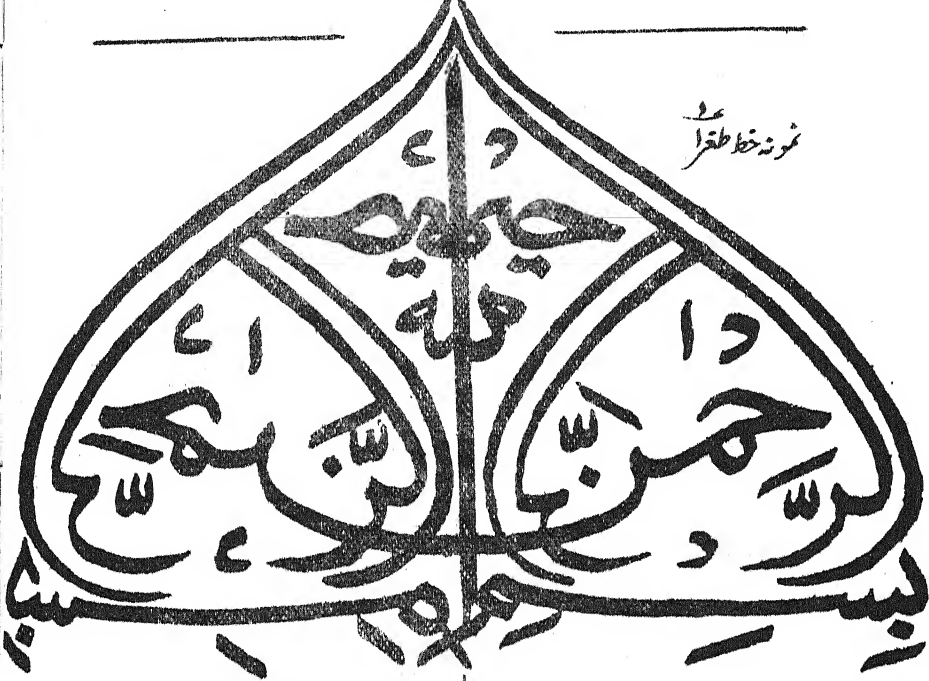 نمونه خط طغرائی
بسم الله الرحمن الرحیم